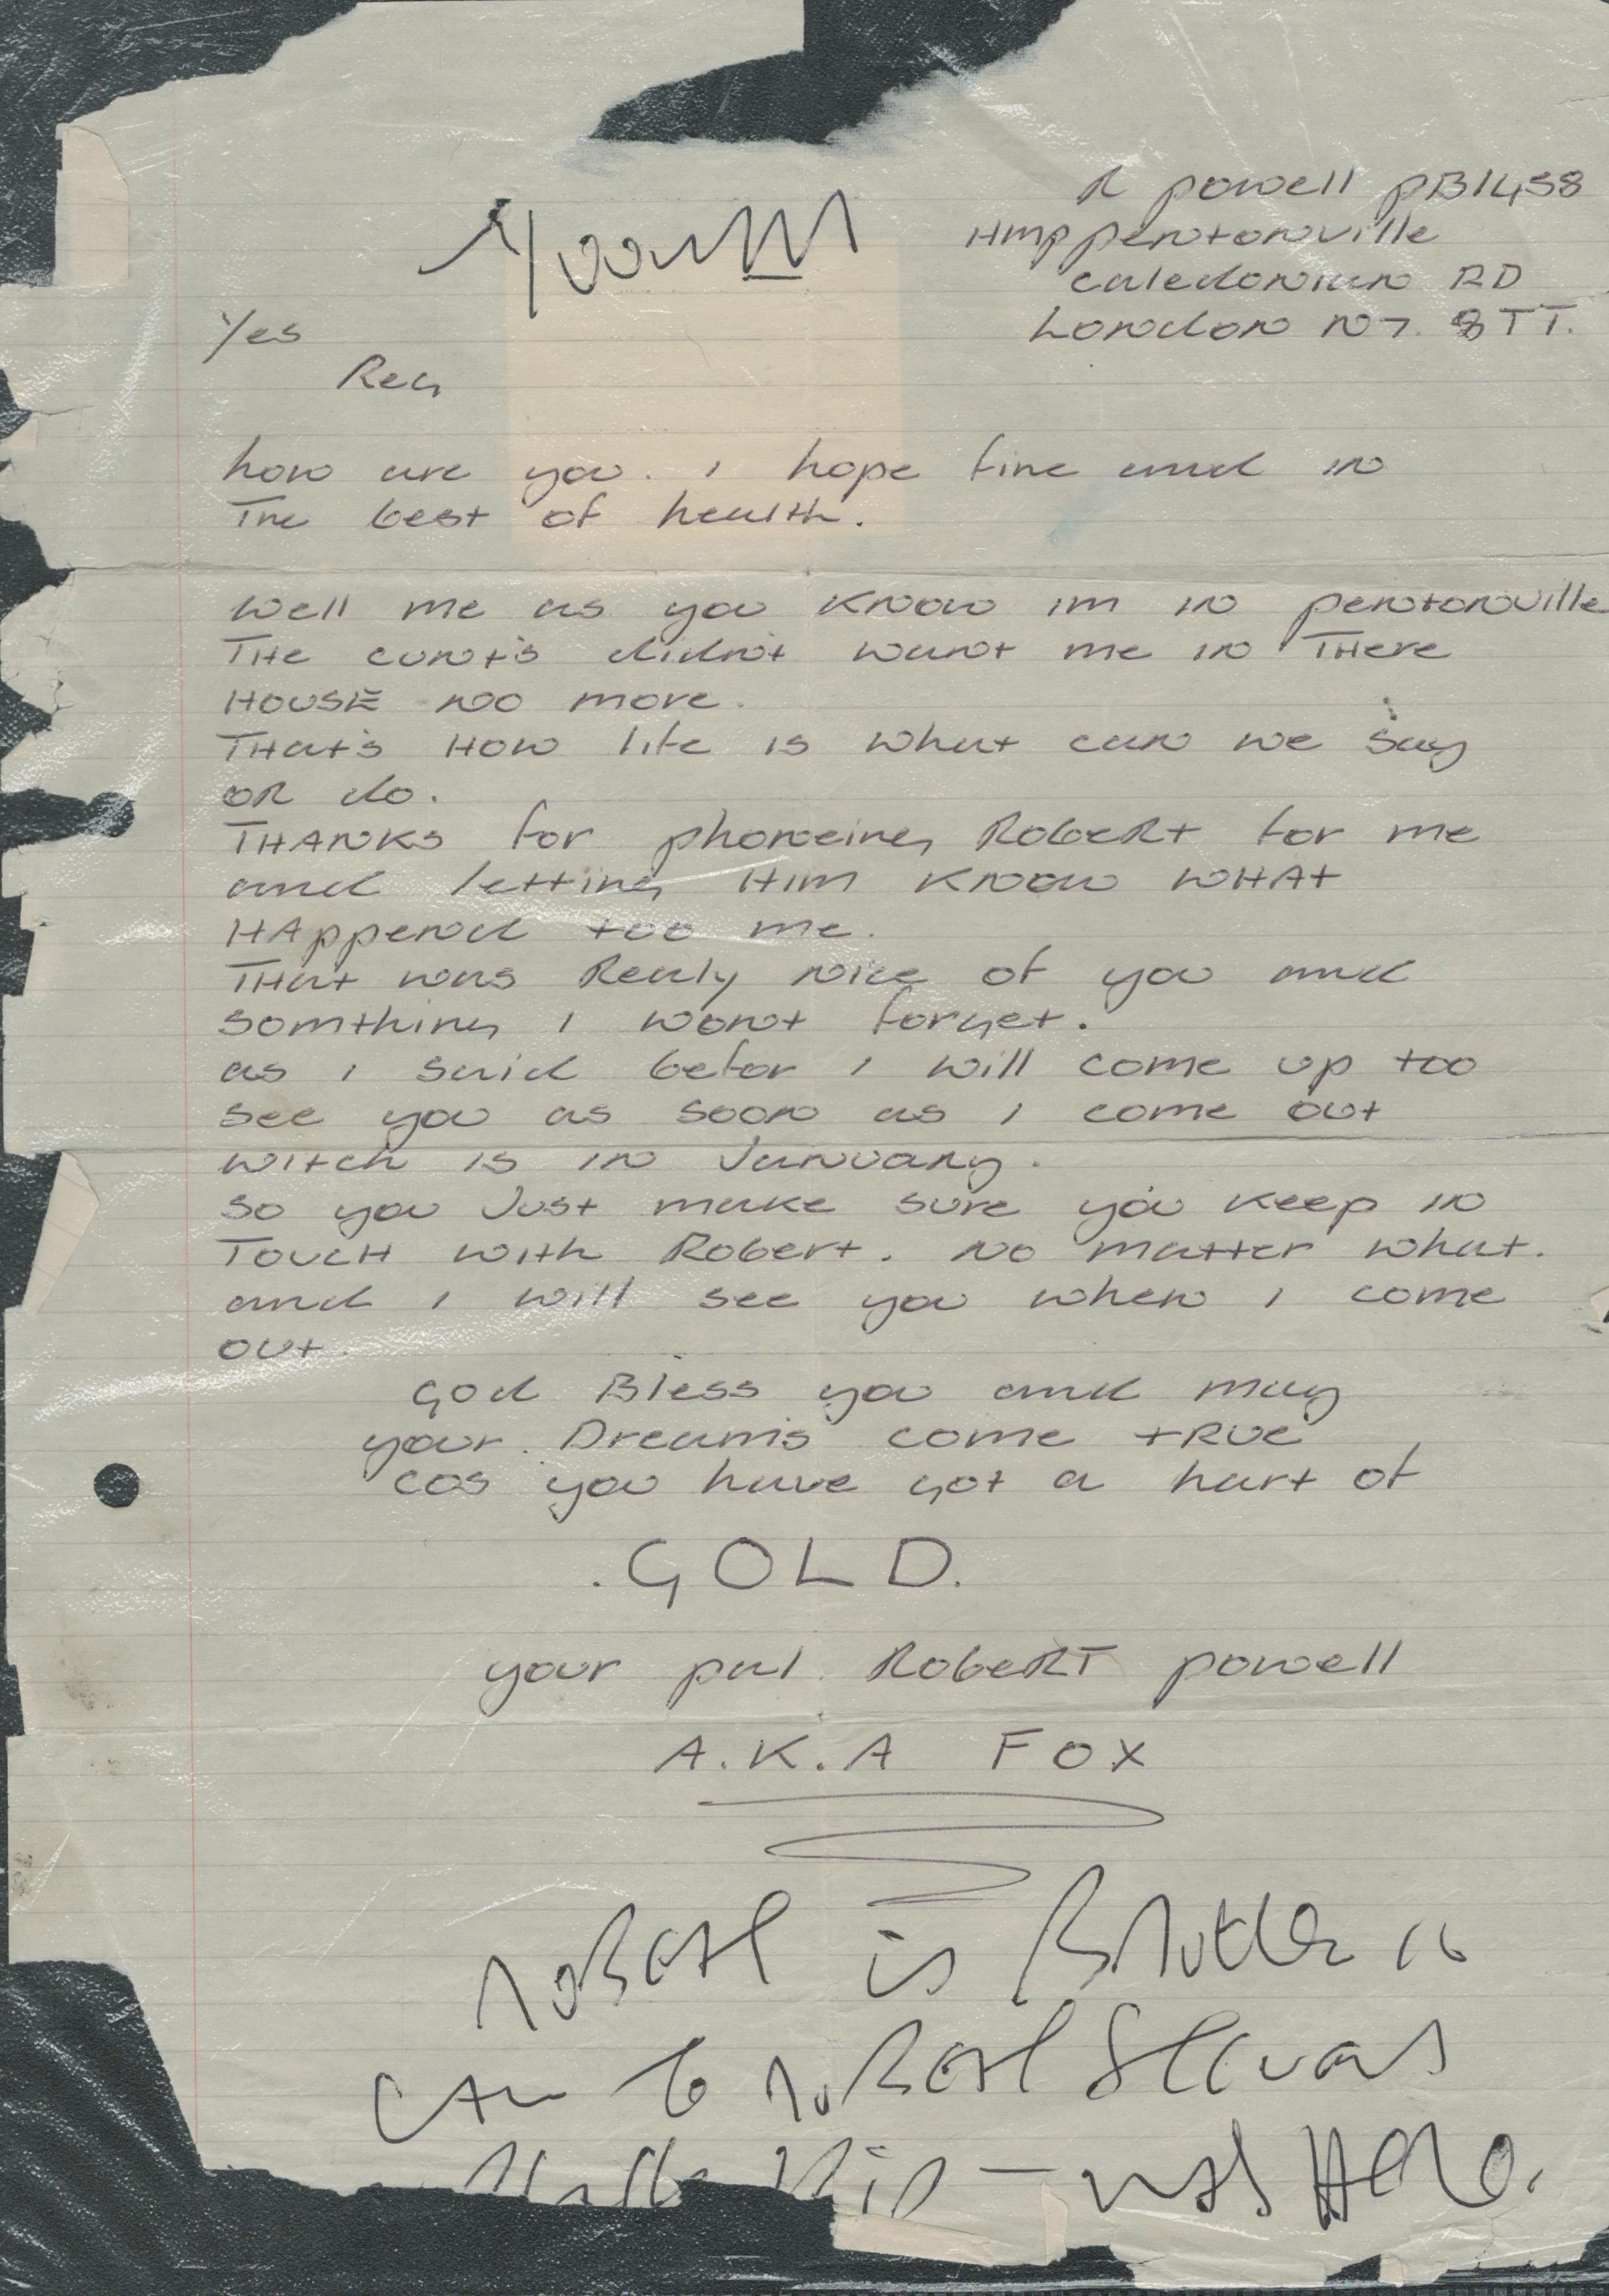 R powell PB1458
HMP pentonville
caledonian RD
London N7. 8TT.
Yes
Reg
how are you. i hope fine and in
The best of health.
well me as you know im in pentonville
THe cunt's didn't want me in THere
HOUSE NO more.
THat's HOW life is what can we say
OR do.
THANKS for phoneing RobeRt for me
and letting HIM KNOW WHAt
HAppend too me.
THat was Realy nice of you and
somthing i wont forget.
as i said befor i will come up too
see you as soon as i come out
witch is in January.
so you Just make sure you keep in
TOUCH with Robert. No matter what.
and i will see you when i come
out.
God Bless you and may
your Dreams come tRUe
cos you have got a hart of
.GOLD.
your pal. RobeRT powell
A.K.A FOX
is